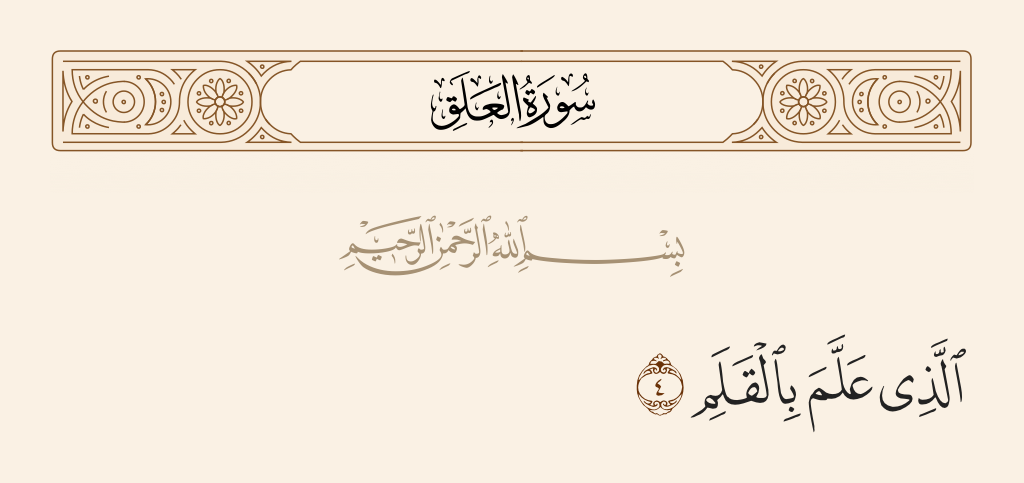 سُورَةُ العَلَقِ
بِسْمِ ٱللَّهِ ٱلرَّحْمَٰنِ ٱلرَّحِيمِ
ٱلَّذِى عَلَّمَ بِٱلْقَلَمِ ٤